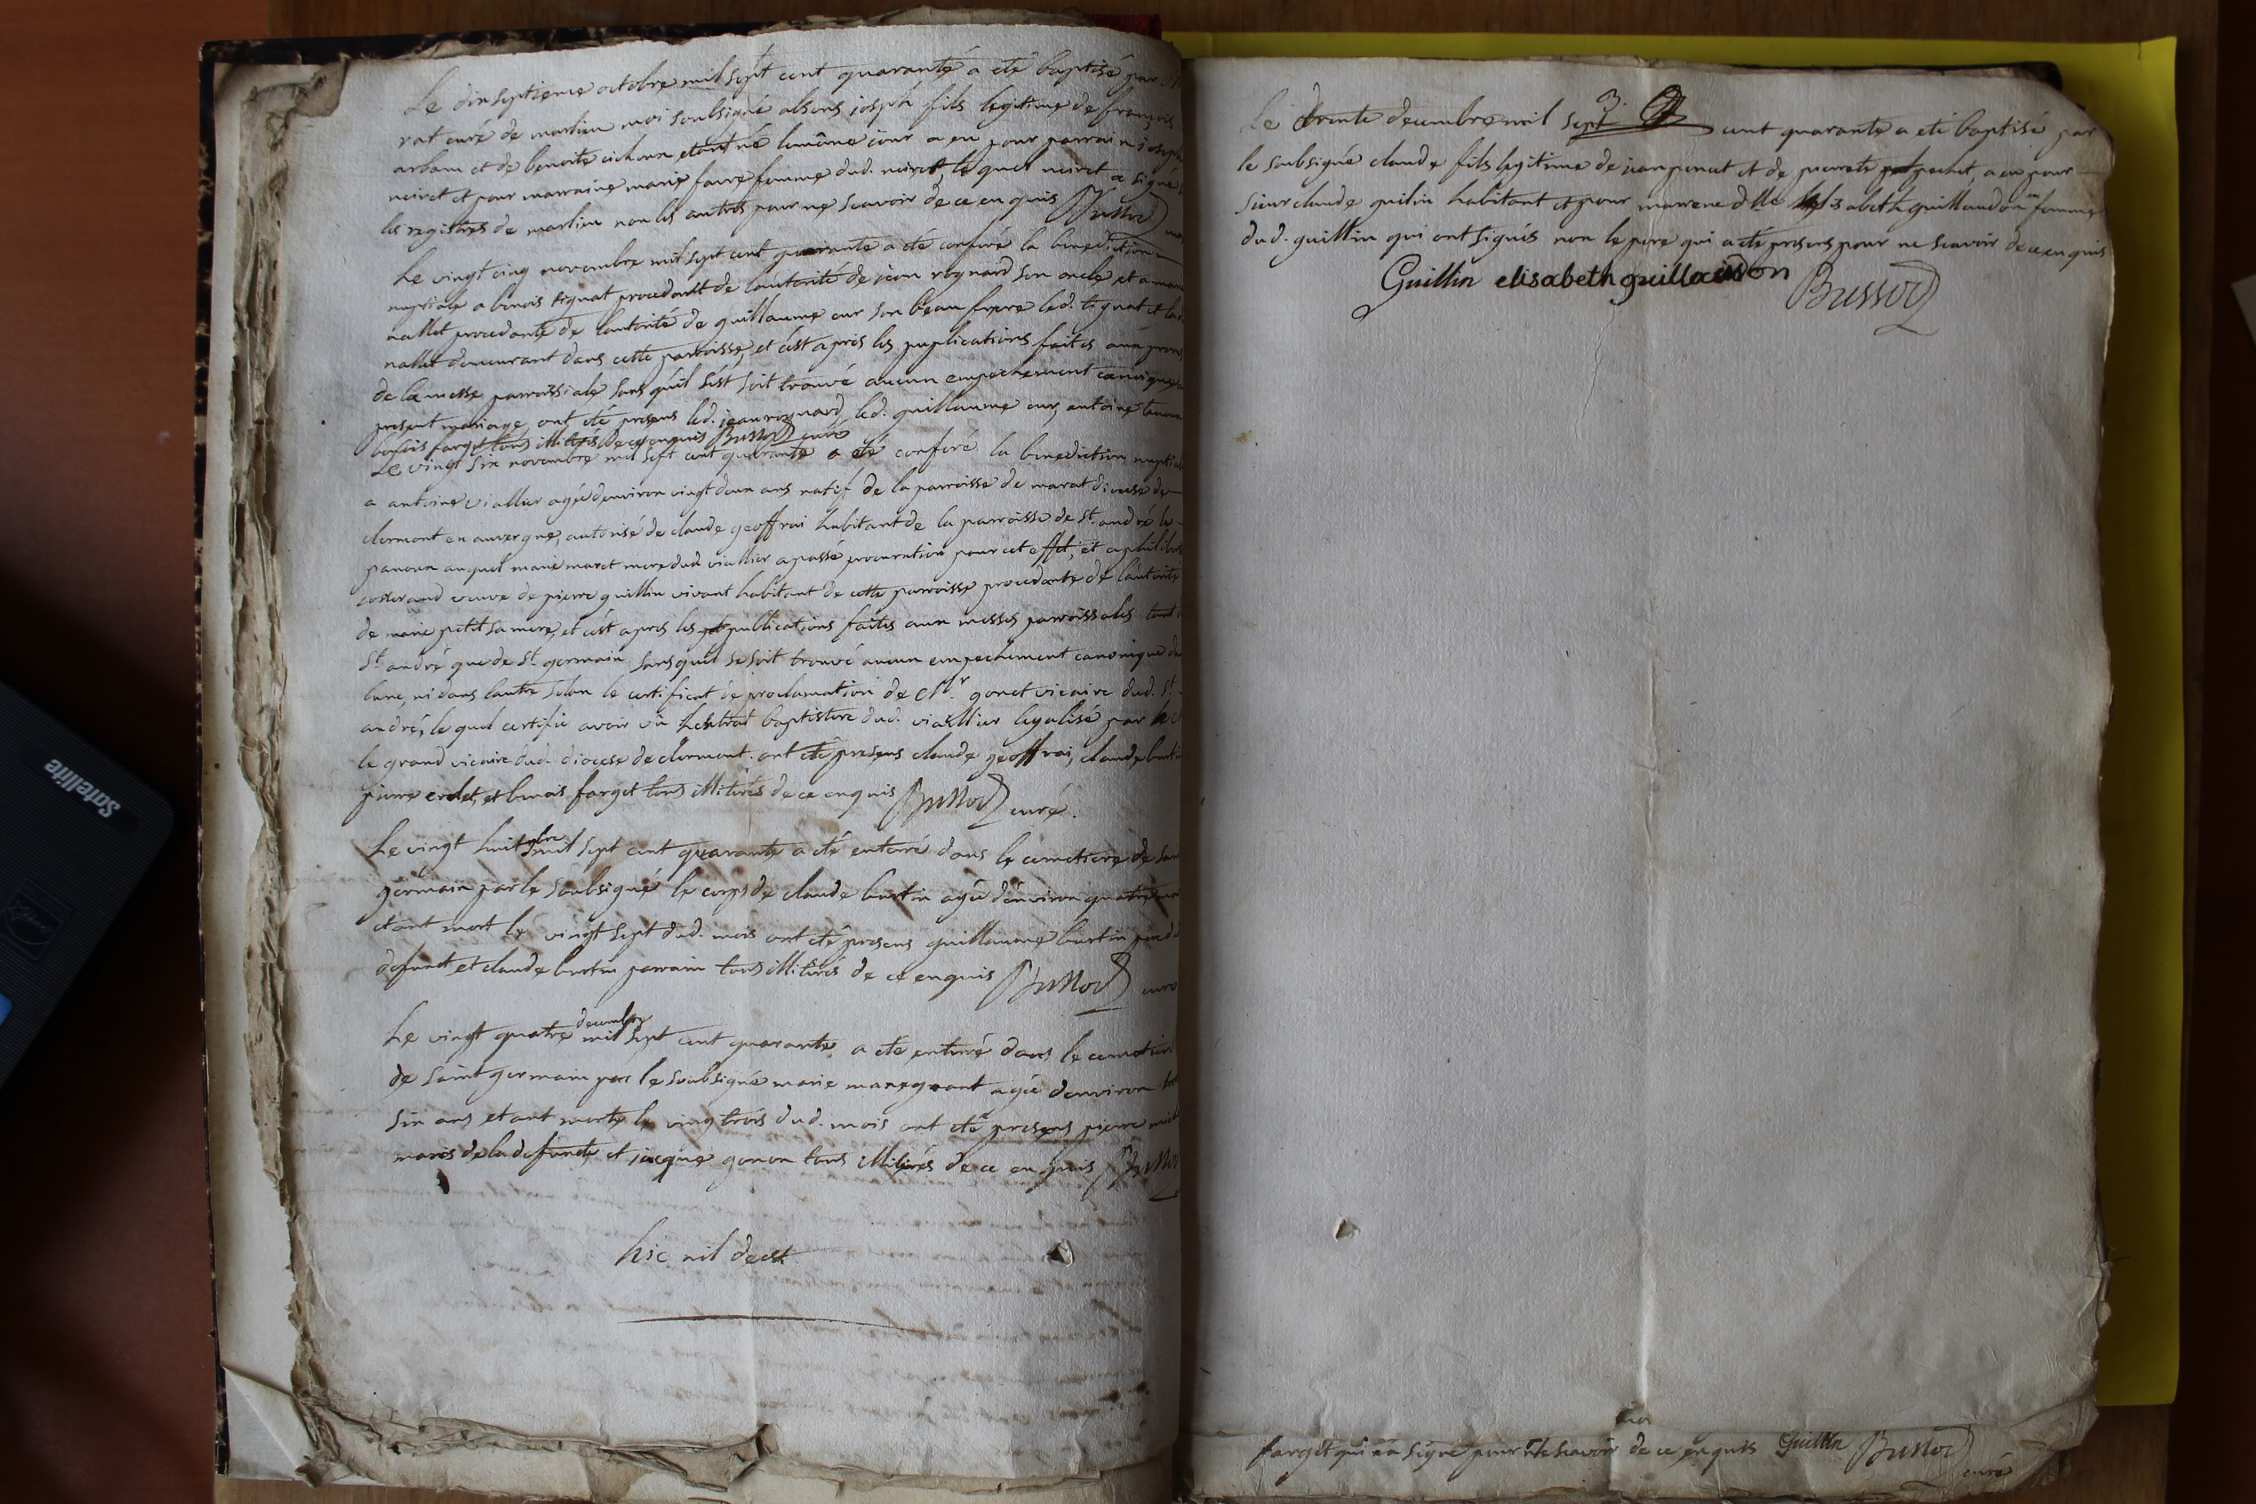 Le dixseptieme octobre mil sept cent quarante a eté baptisé par
rat curé de marlieu moi soubsigné absens joseph fils legitime de françois
et de benoite etant né le même jour a eu pour parrain joseph
neiret et pour marraine marie faure femme dud. neiret, le quel neiret a signé
les registres de marlieu non les autres pour ne scavoir de ce enquis Bussod
Le vingt cinq novembre mil sept cent quarante a eté conferé la benediction
nuptiale a benois tignat procedant de l'autorité de jean rognard son oncle et a marie
nallet procedante de lautorité de guillaume cur son beau frere led. tignat et lad.
nallet demeurant dans cette parroisse, et c'est apres les puplications faites aux prones
de la messe parroissiale sans qu'il s'est soit trouvé aucun empechement canonique
present mariage, ont eté presens led. jean rognard, led. guillaume cur, antoine
benois farget tous illiterés de ce enquis Bussod curé
Le vingt six novembre mil sept cent quarante a eté conferé la benediction nuptiale
a antoine viallier agée denviron vingt deux ans natif de la parroisse de marat diocese de
clermont en auvergne, autorisé de claude geoffrai habitant de la parroisse de St. andré le
panoux auquel marie maret mere dud. viallier a passé procuration pour cet effet, et a philiberte
costerand veuve de pierre guillin vivant habitant de cette parroisse procedante de l'autorité
de marie petit sa mere, et c'est apres les publications faites aux messes parroissiales tant
St. andré que de St. germain sans qu'il se soit trouvé aucun empechement canonique
lune, ni dans lautre selon le certificat de proclamation de Mr. gonet vicaire dud. St.
andré, le quel certifie avoir vû lextrait baptistere dud. viallier legalisé par
le grand vicaire dud. diocese de clermont. ont eté presens claude geoffrai, claude burtin
pierre et benois farget tous illiterés de ce enquis Bussod curé.
Le vingt huit 9bre mil sept cent quarante a eté enterré dans le cimetiere de saint
germain par le soubsigné le corps de claude burtin agée d'environ quatre
etant mort le vingt sept dud. mois ont eté presens guillaume burtin pere du
defunct et claude burtin parrain tous illiterés de ce enquis Bussod curé
Le vingt quatre decembre mil sept cent quarante a eté enterré dans le cimetiere
de saint germain par le soubsigné marie agée denviron
six ans etant morte le vingt trois dud. mois ont eté presens pierre
maris de la defuncte et jacque gonon tous illiterés de ce enquis Bussod
hic nil deest
Le trente decembre mil sept cent quarante a eté baptisé par
le soubsigné claude fils legitime de jean poncet et de pierrette pochet, a eu pour
sieur claude guilin habitant et pour marrene dlle elisabeth guillaudon femme
dud. guillin qui ont signés non le pere qui a eté presens pour ne scavoir de ce enquis
Guillin elisabeth guillaudon Bussod
farget qui n'a signé pour ne scavoir de ce enquis Guillin Bussod
curé